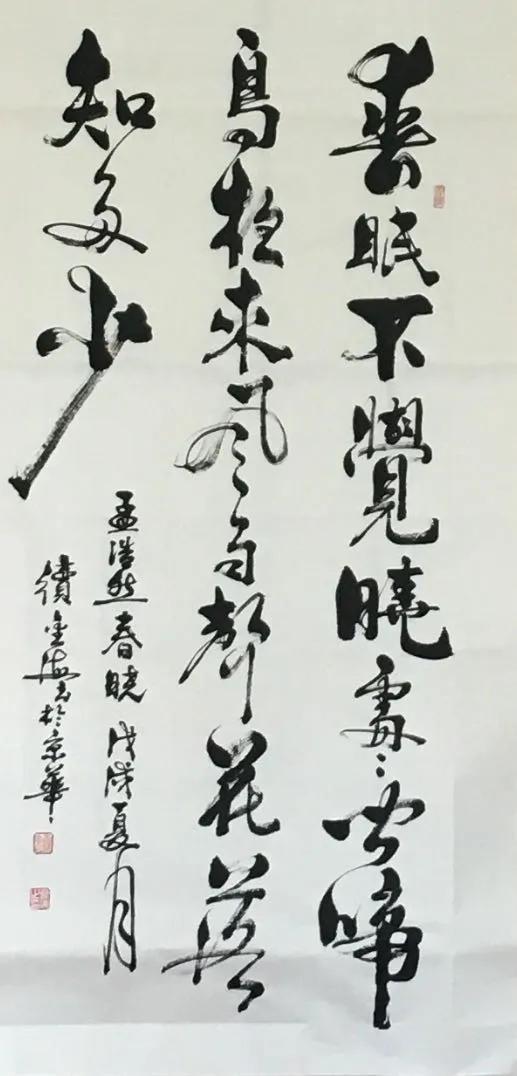 春眠不覺曉處〻聞啼
鳥夜來風雨聲花落
知多少
孟浩然春晓 戊戌夏月
金海书於京華